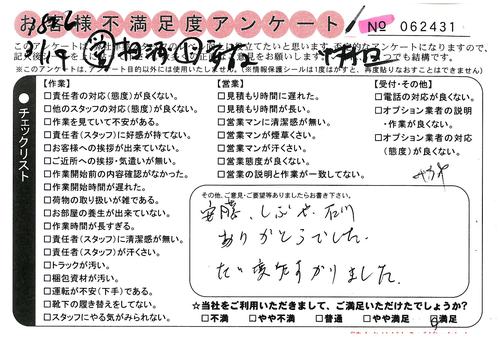 お客様不満足度アンケート
No 062431
※このアンケートは、アンケート目的以外には使用いたしません。(※情報保護シールは1度はがすと、再度貼りなおすことはできません)
チェックリスト
【作業】
□責任者の対応(態度)が良くない。
□他のスタッフの対応(態度)が良くない。
□作業を見ていて不安がある。
□責任者(スタッフ)に好感が持てない。
□お客様への挨拶が出来ていない。
□ご近所への挨拶・気遣いが無い。
□作業開始前の内容確認がなかった。
□作業開始時間が遅れた。
□荷物の取り扱いが雑である。
□お部屋の養生が出来ていない。
□作業時間が長すぎる。
□責任者(スタッフ)に清潔感が無い。
□責任者(スタッフ)が汗くさい。
□トラックが汚い。
□梱包資材が汚い。
□運転が不安(下手)である。
□靴下の履き替えをしてない。
□スタッフにやる気がみられない。
【営業】
□見積もり時間に遅れた。
□見積もり時間が長い。
□営業マンに清潔感が無い。
□営業マンが煙草くさい。
□営業マンが汗くさい。
□営業態度が良くない。
□営業の説明と作業が一致してない。
【受付・その他】
□電話の対応が良くない。
□オプション業者の説明
・作業が良くない。
□オプション業者の対応
(態度)が良くない。
その他、ご意見・ご要望等ありましたらお書き下さい。
安藤、しぶや、石川
ありがとうでした。
たい変たすかりました。
☆当社をご利用いただきまして、ご満足いただけたでしょうか?
□不満 □やや不満 □普通 □やや満足 □満足